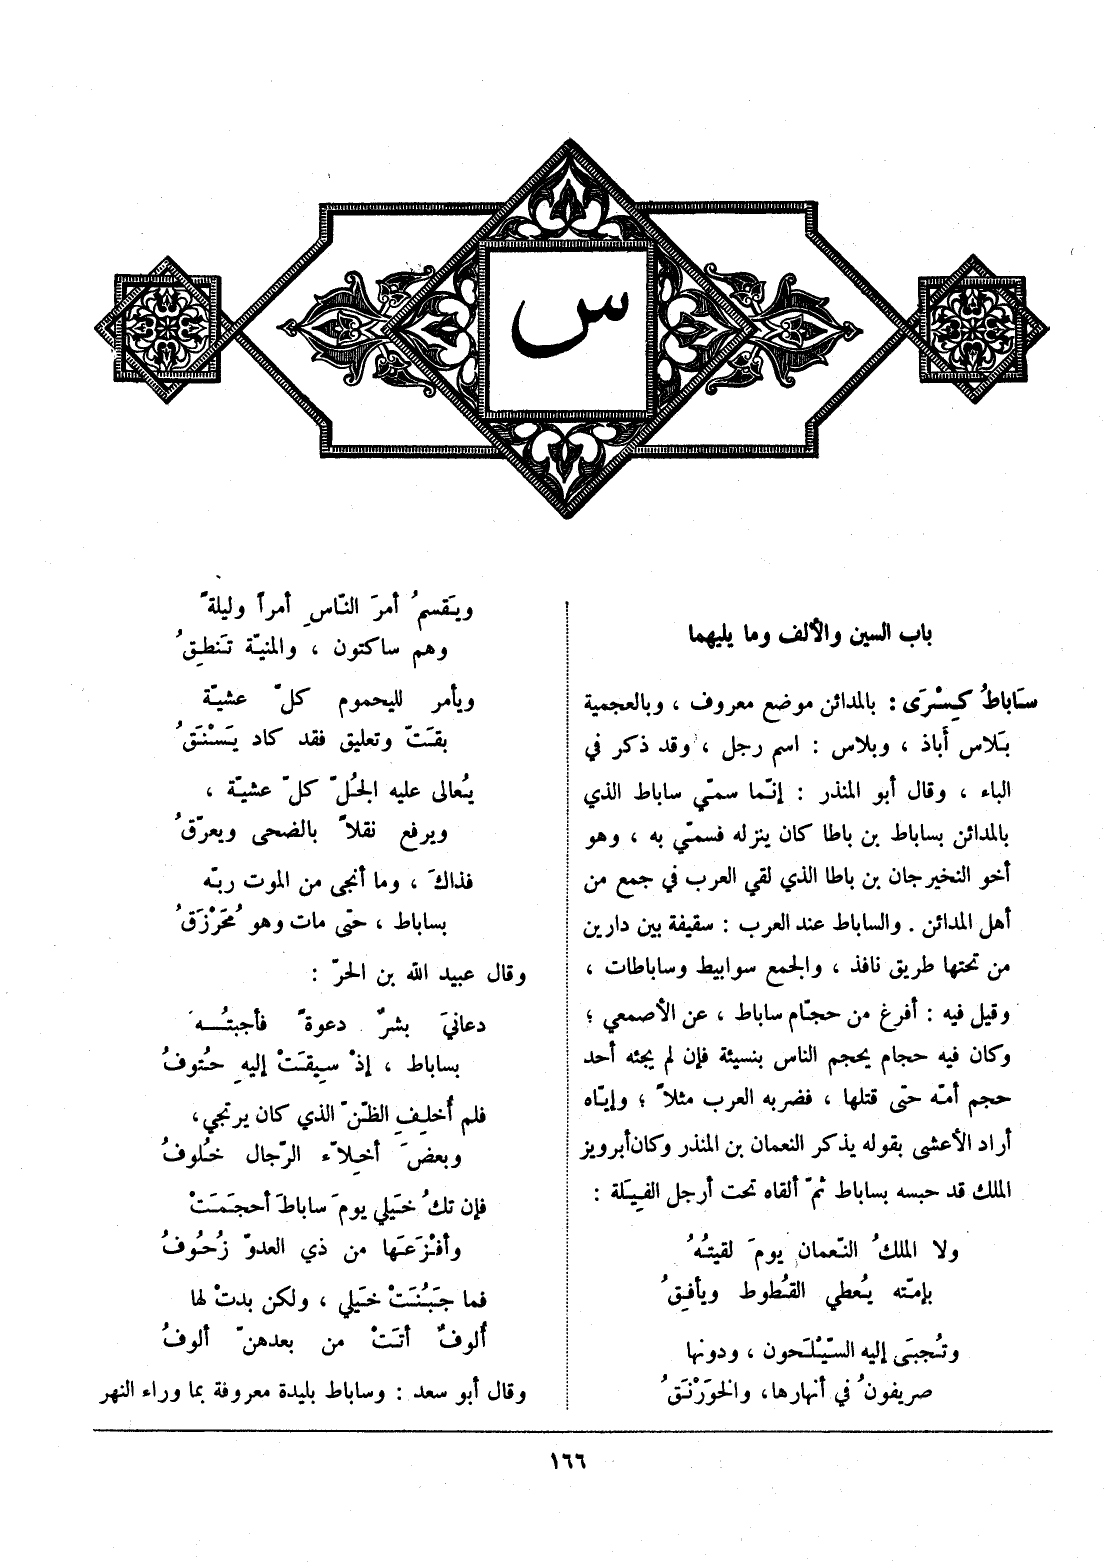 س
باب السين والألف وما يليهما
سَاباطُ كِسْرَى : بالمدائن موضع معروف ، وبالعجمية
بَلاس أَباذ ، وبلاس : اسم رجل ، وقد ذكر في
الباء ، وقال أبو المنذر : إنّما سمّي ساباط الذي
بالمدائن بساباط بن باطا كان ينزله فسمّي به ، وهو
أخو النخيرجان بن باطا الذي لقي العرب في جمع من
أهل المدائن . والساباط عند العرب : سقيفة بين دارين
من تحتها طريق نافذ ، والجمع سوابيط وساباطات ،
وقيل فيه : أفرغ من حجّام ساباط ، عن الأصمعي ؛
وكان فيه حجام يحجم الناس بنسيئة فإن لم يجئه أحد
حجم أمّه حتّى قتلها ، فضربه العرب مثلاً ؛ وإيّاه
أراد الأعشى بقوله يذكر النعمان بن المنذر وكان أبرويز
الملك قد حبسه بساباط ثمّ ألقاه تحت أرجل الفِيَلة :
ولا الملكُ النّعمان يومَ لقيتُهُ
بإمّته يُعطي القُطوط ويأفِقُ
وتُجبَى إليه السَّيْلَحون ، ودونها
صريفونُ في أنهارها، والخوَرْنَقُ
ويَقسمُ أمرَ النّاسِ أمراً وليلةً
وهم ساكتون ، والمنيّة تَنطِقُ
ويأمر لليحموم كلّ عشيّة
بقَتّ وتعليق فقد كاد يَسْنَقُ
يُعالى عليه الجُلّ كلّ عشيّة ،
ويرفع نقلاً بالضحى ويعرّقُ
فذاكَ ، وما أنجى من الموت ربّه
بساباط ، حتّى مات وهو مُحَرْزَقُ
وقال عبيد الله بن الحرّ :
دعانيَ بشرٌ دعوةً فأجبتُـــه
بساباط ، إذْ سِيقَتْ إليهِ حُتوفُ
فلم أُخلِفِ الظّنّ الذي كان يرتجي،
وبعضَ أخِلاّء الرّجال خُلوفُ
فإن تكُ خَيلي يومَ ساباطَ أحجَمَتْ
وأفْزَعَها من ذي العدوّ زُحُوفُ
فما جَبُنَتْ خَيلي ، ولكن بدتْ لها
أُلوفٌ أتَتْ من بعدهنّ ألوفُ
وقال أبو سعد : وساباط بليدة معروفة بما وراء النهر
١٦٦